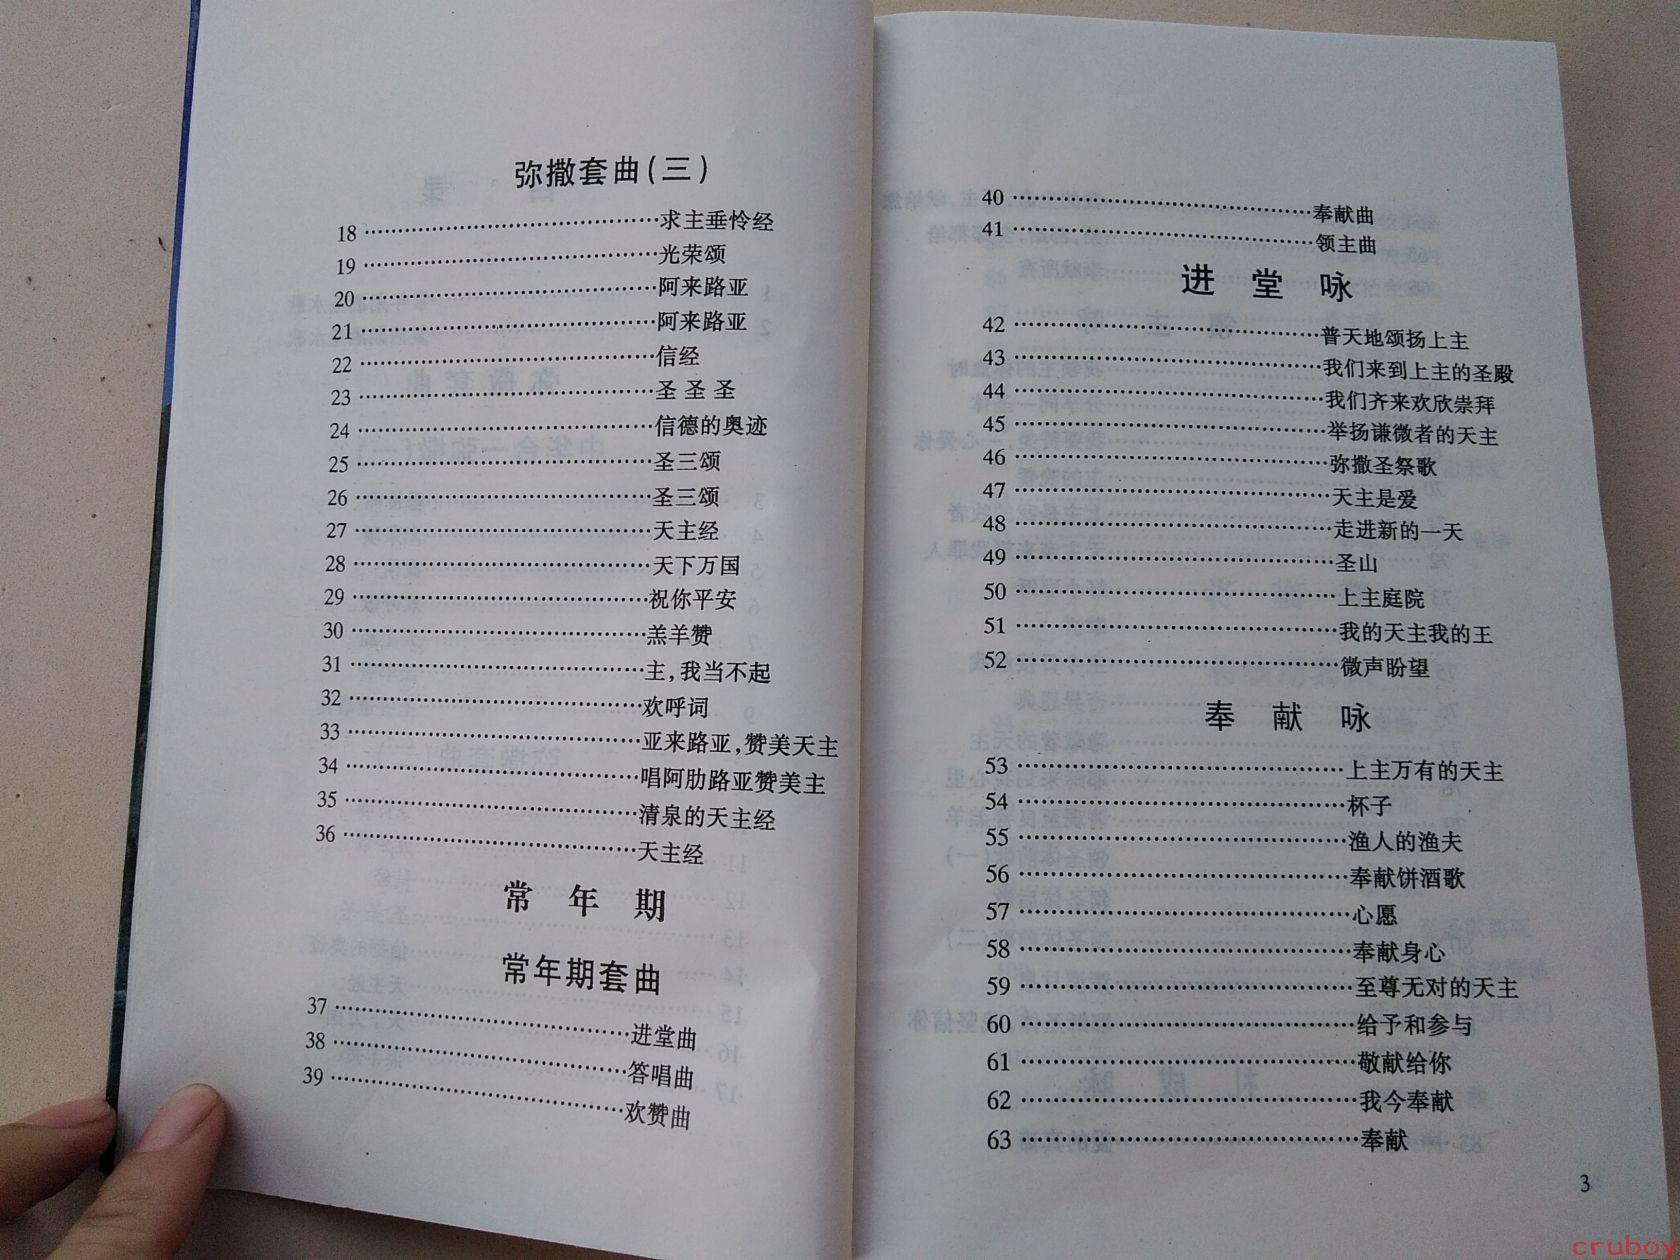 弥撒套曲(三)
18 ··· 求主垂怜经
19 ··· 光荣颂
20 ··· 阿来路亚
21 ··· 阿来路亚
22 ··· 信经
23 ··· 圣 圣 圣
24 ··· 信德的奥迹
25 ··· 圣三颂
26 ··· 圣三颂
27 ··· 天主经
28 ··· 天下万国
29 ··· 祝你平安
30 ··· 羔羊赞
31 ··· 主,我当不起
32 ··· 欢呼词
33 ··· 亚来路亚,赞美天主
34 ··· 唱阿肋路亚赞美主
35 ··· 清泉的天主经
36 ··· 天主经
常 年 期
常年期套曲
37 ··· 进堂曲
38 ··· 答唱曲
39 ··· 欢赞曲
40 ··· 奉献曲
41 ··· 领主曲
进 堂 咏
42 ··· 普天地颂扬上主
43 ··· 我们来到上主的圣殿
44 ··· 我们齐来欢欣崇拜
45 ··· 举扬谦微者的天主
46 ··· 弥撒圣祭歌
47 ··· 天主是爱
48 ··· 走进新的一天
49 ··· 圣山
50 ··· 上主庭院
51 ··· 我的天主我的王
52 ··· 微声盼望
奉 献 咏
53 ··· 上主万有的天主
54 ··· 杯子
55 ··· 渔人的渔夫
56 ··· 奉献饼酒歌
57 ··· 心愿
58 ··· 奉献身心
59 ··· 至尊无对的天主
60 ··· 给予和参与
61 ··· 敬献给你
62 ··· 我今奉献
63 ··· 奉献
3
cruboy